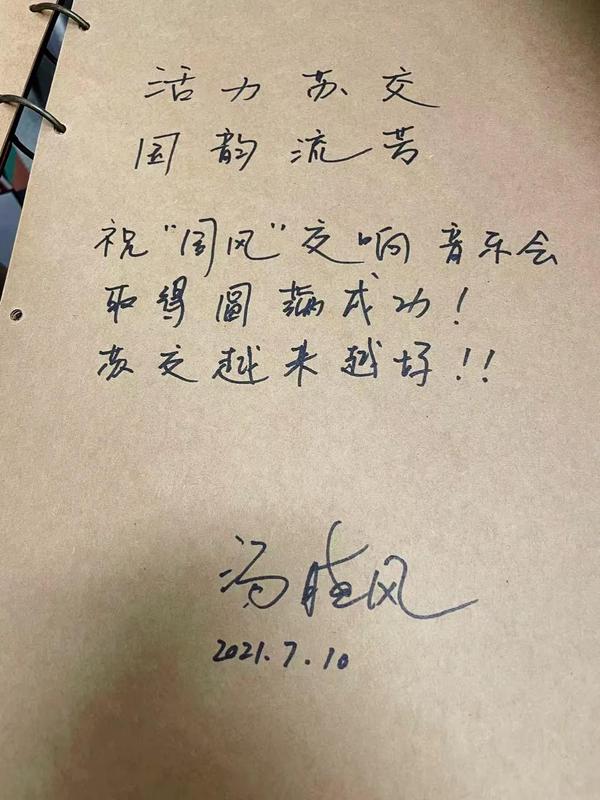 活力苏交
国韵流芳
祝"国风"交响音乐会
取得圆满成功!
苏交越来越好!!
冯晓风
2021.7.10